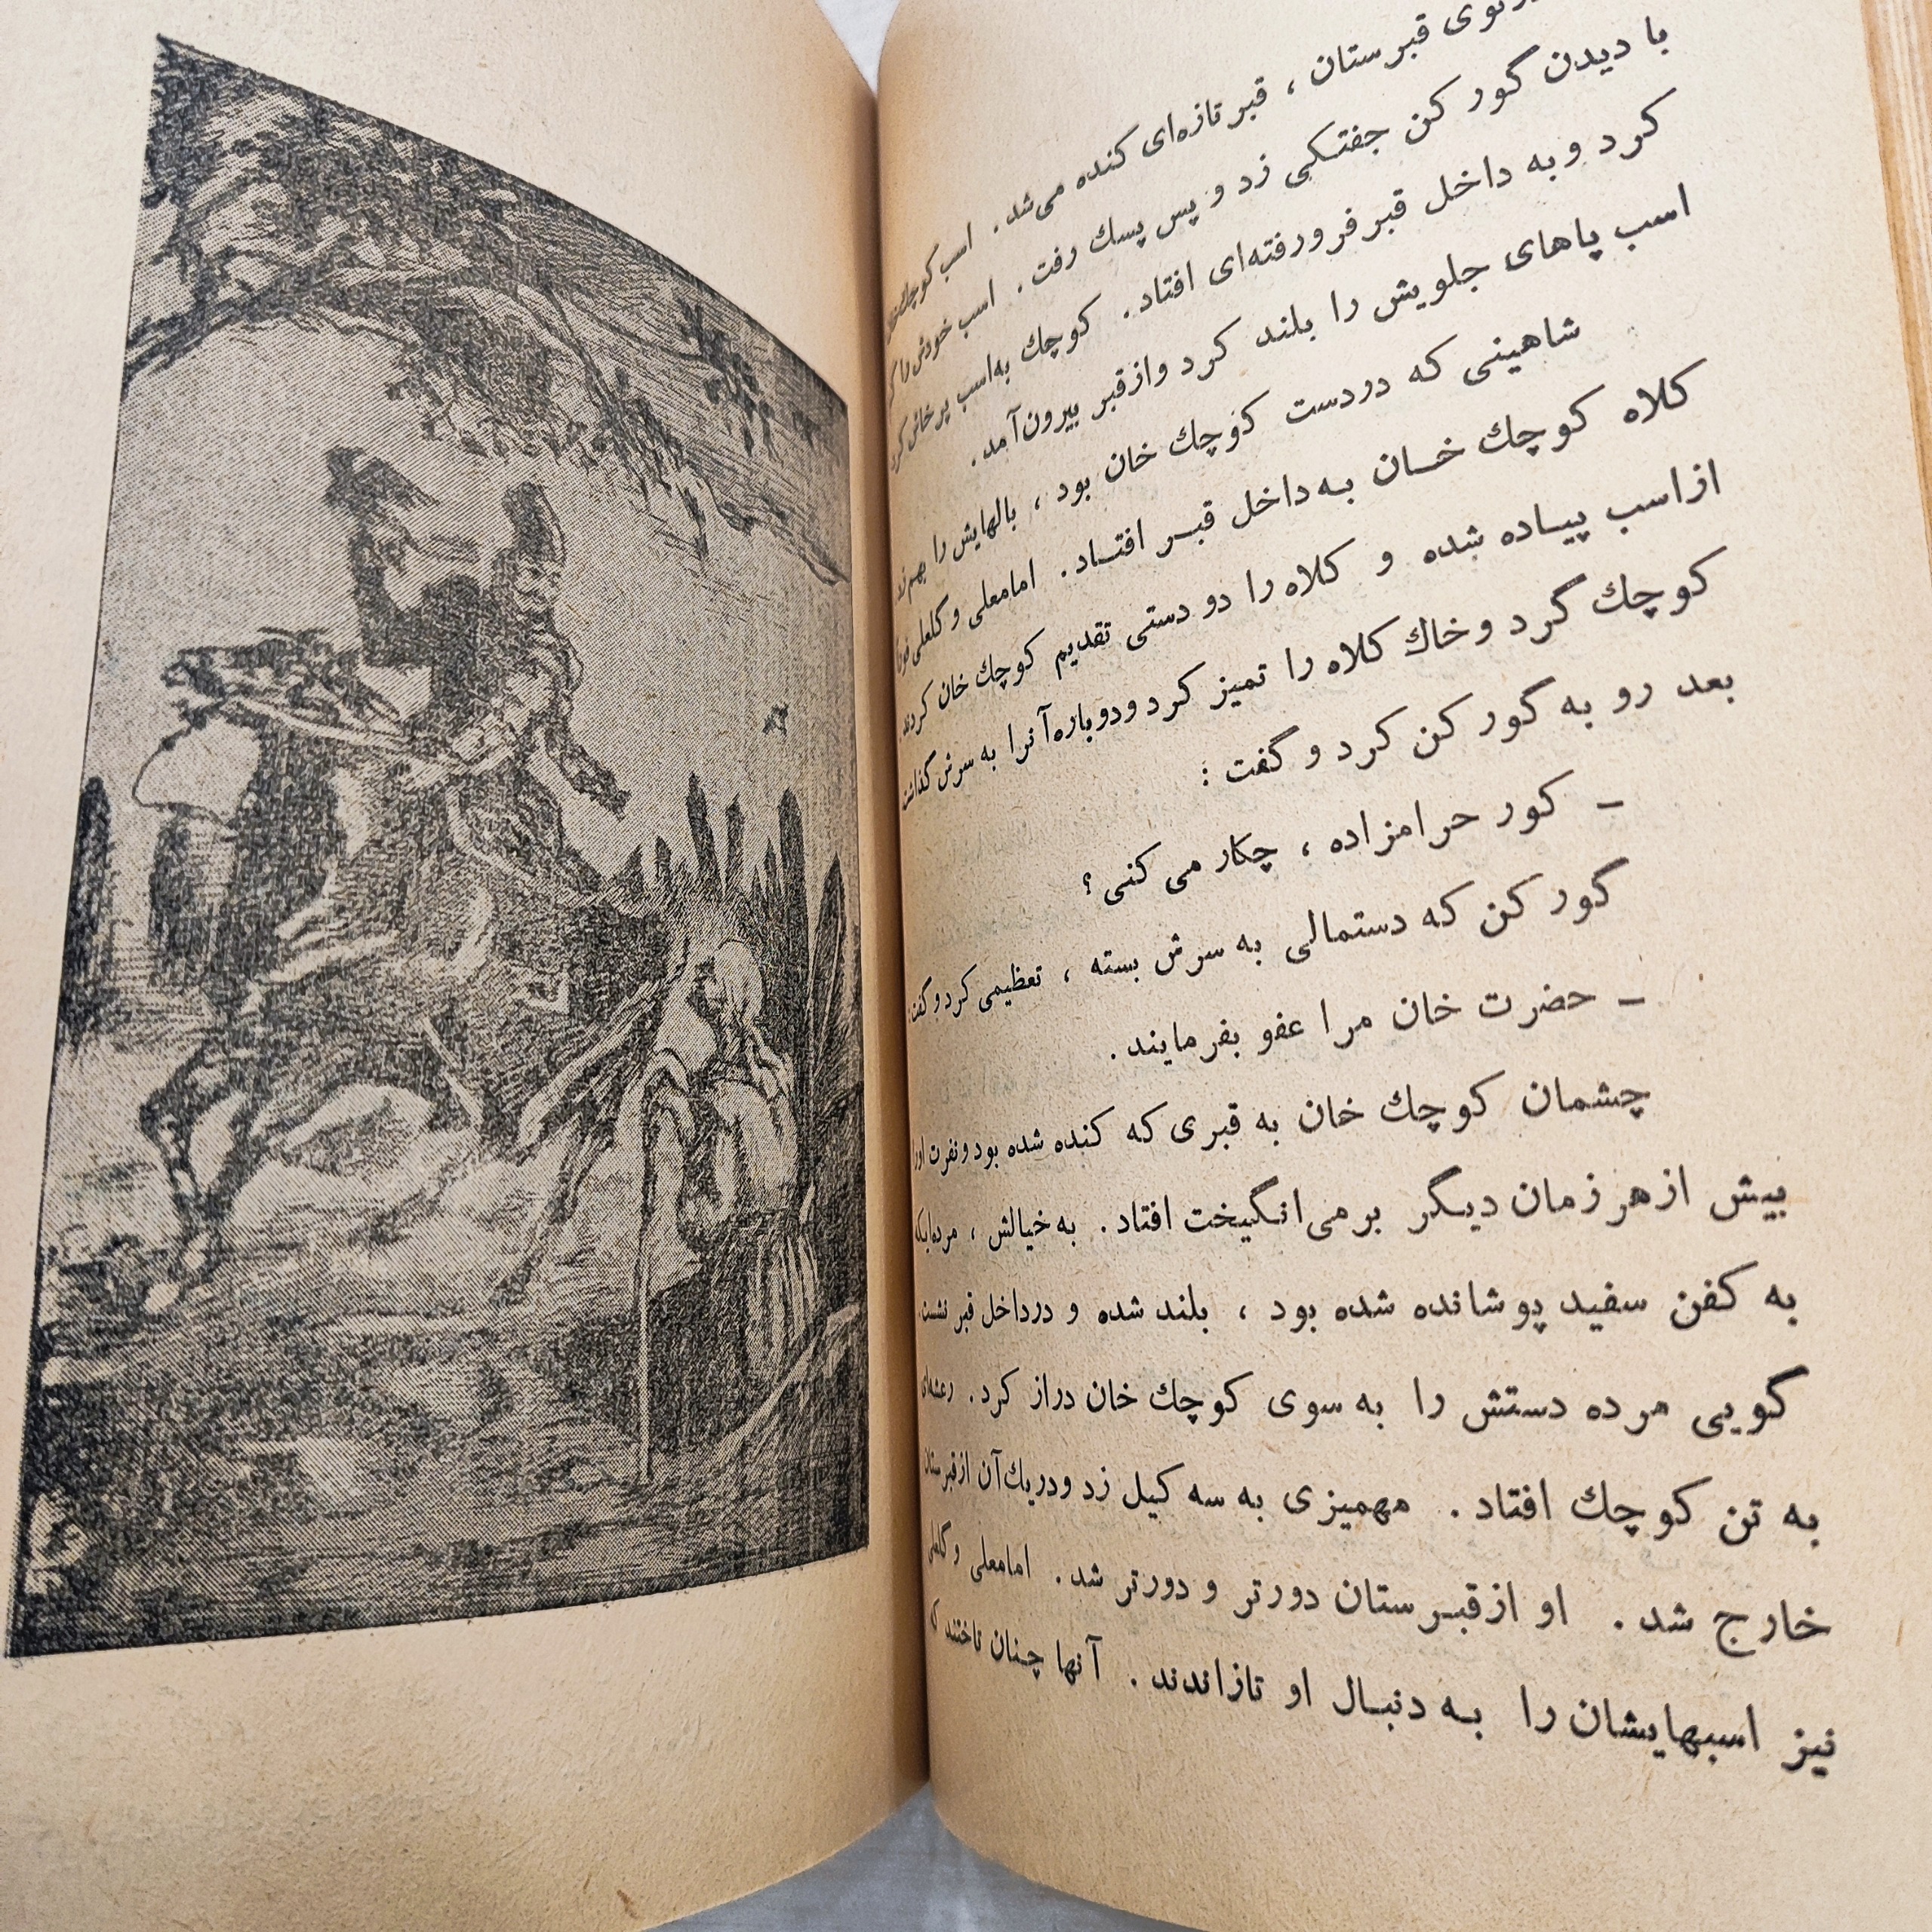 توی قبرستان ، قبر تازه‌ای کنده می‌شد . اسب کوچك خان
با دیدن گور کن جفتکی زد و پس پسك رفت . اسب خودش را گم
کرد و به داخل قبر فرو رفته‌ای افتاد . کوچك به اسب پرخاش کرد
اسب پاهای جلویش را بلند کرد و از قبر بیرون آمد .
شاهینی که در دست کوچك خان بود ، بالهایش را بهم زد
کلاه کوچك خان به داخل قبر افتاد . امامعلی و گلعلی فوراً
از اسب پیاده شده و کلاه را دو دستی تقدیم کوچك خان کردند
کوچك گرد و خاك کلاه را تمیز کرد و دوباره آنرا به سرش گذاشت
بعد رو به گور کن کرد و گفت :
– کور حرامزاده ، چکار می کنی ؟
گور کن که دستمالی به سرش بسته ، تعظیمی کرد و گفت :
– حضرت خان مرا عفو بفرمایند .
چشمان کوچك خان به قبری که کنده شده بود و نفرت اورا
بیش از هر زمان دیگر بر می‌انگیخت افتاد . به خیالش ، مرده‌ایکه
به کفن سفید پوشانده شده بود ، بلند شده و در داخل قبر نشست .
گویی مرده دستش را به سوی کوچك خان دراز کرد . رعشه‌ای
به تن کوچك افتاد . مهمیزی به سه کیل زد و در یك آن از قبرستان
خارج شد . او از قبرستان دورتر و دورتر شد . امامعلی و گلعلی
نیز اسبهایشان را به دنبال او تازاندند . آنها چنان تاختند که